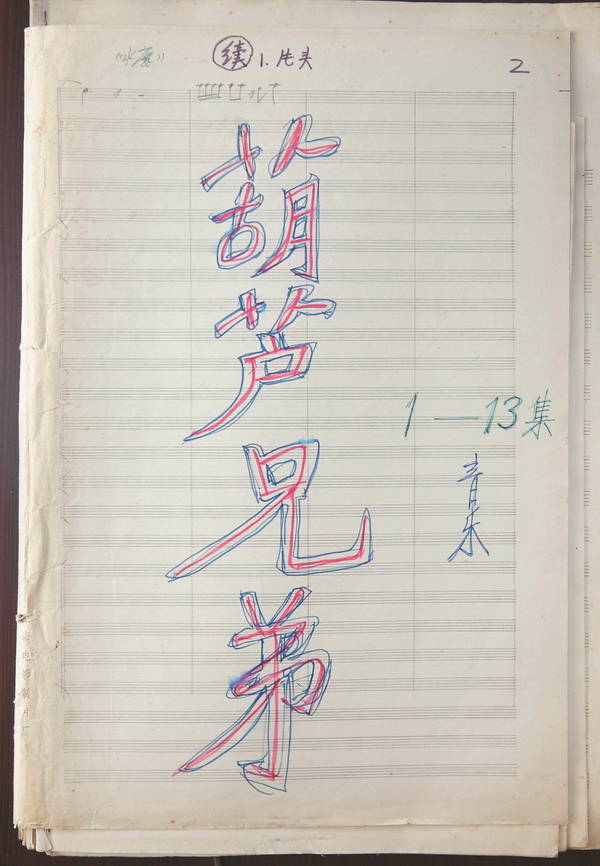 续 1. 片头
2
葫芦兄弟
1—13集
音乐